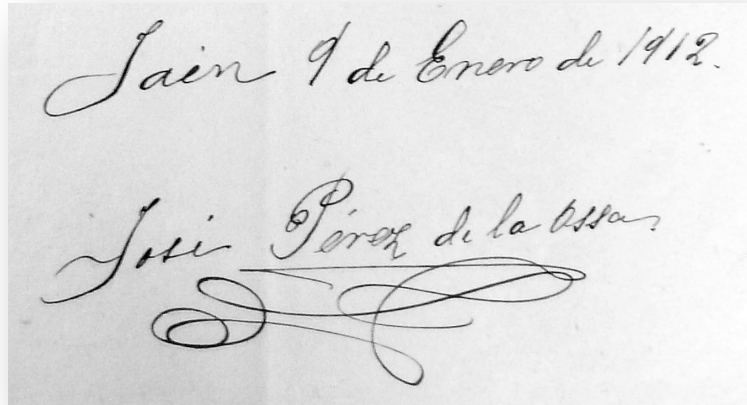 Jaén 9 de Enero de 1912.
José Pérez de la Ossa